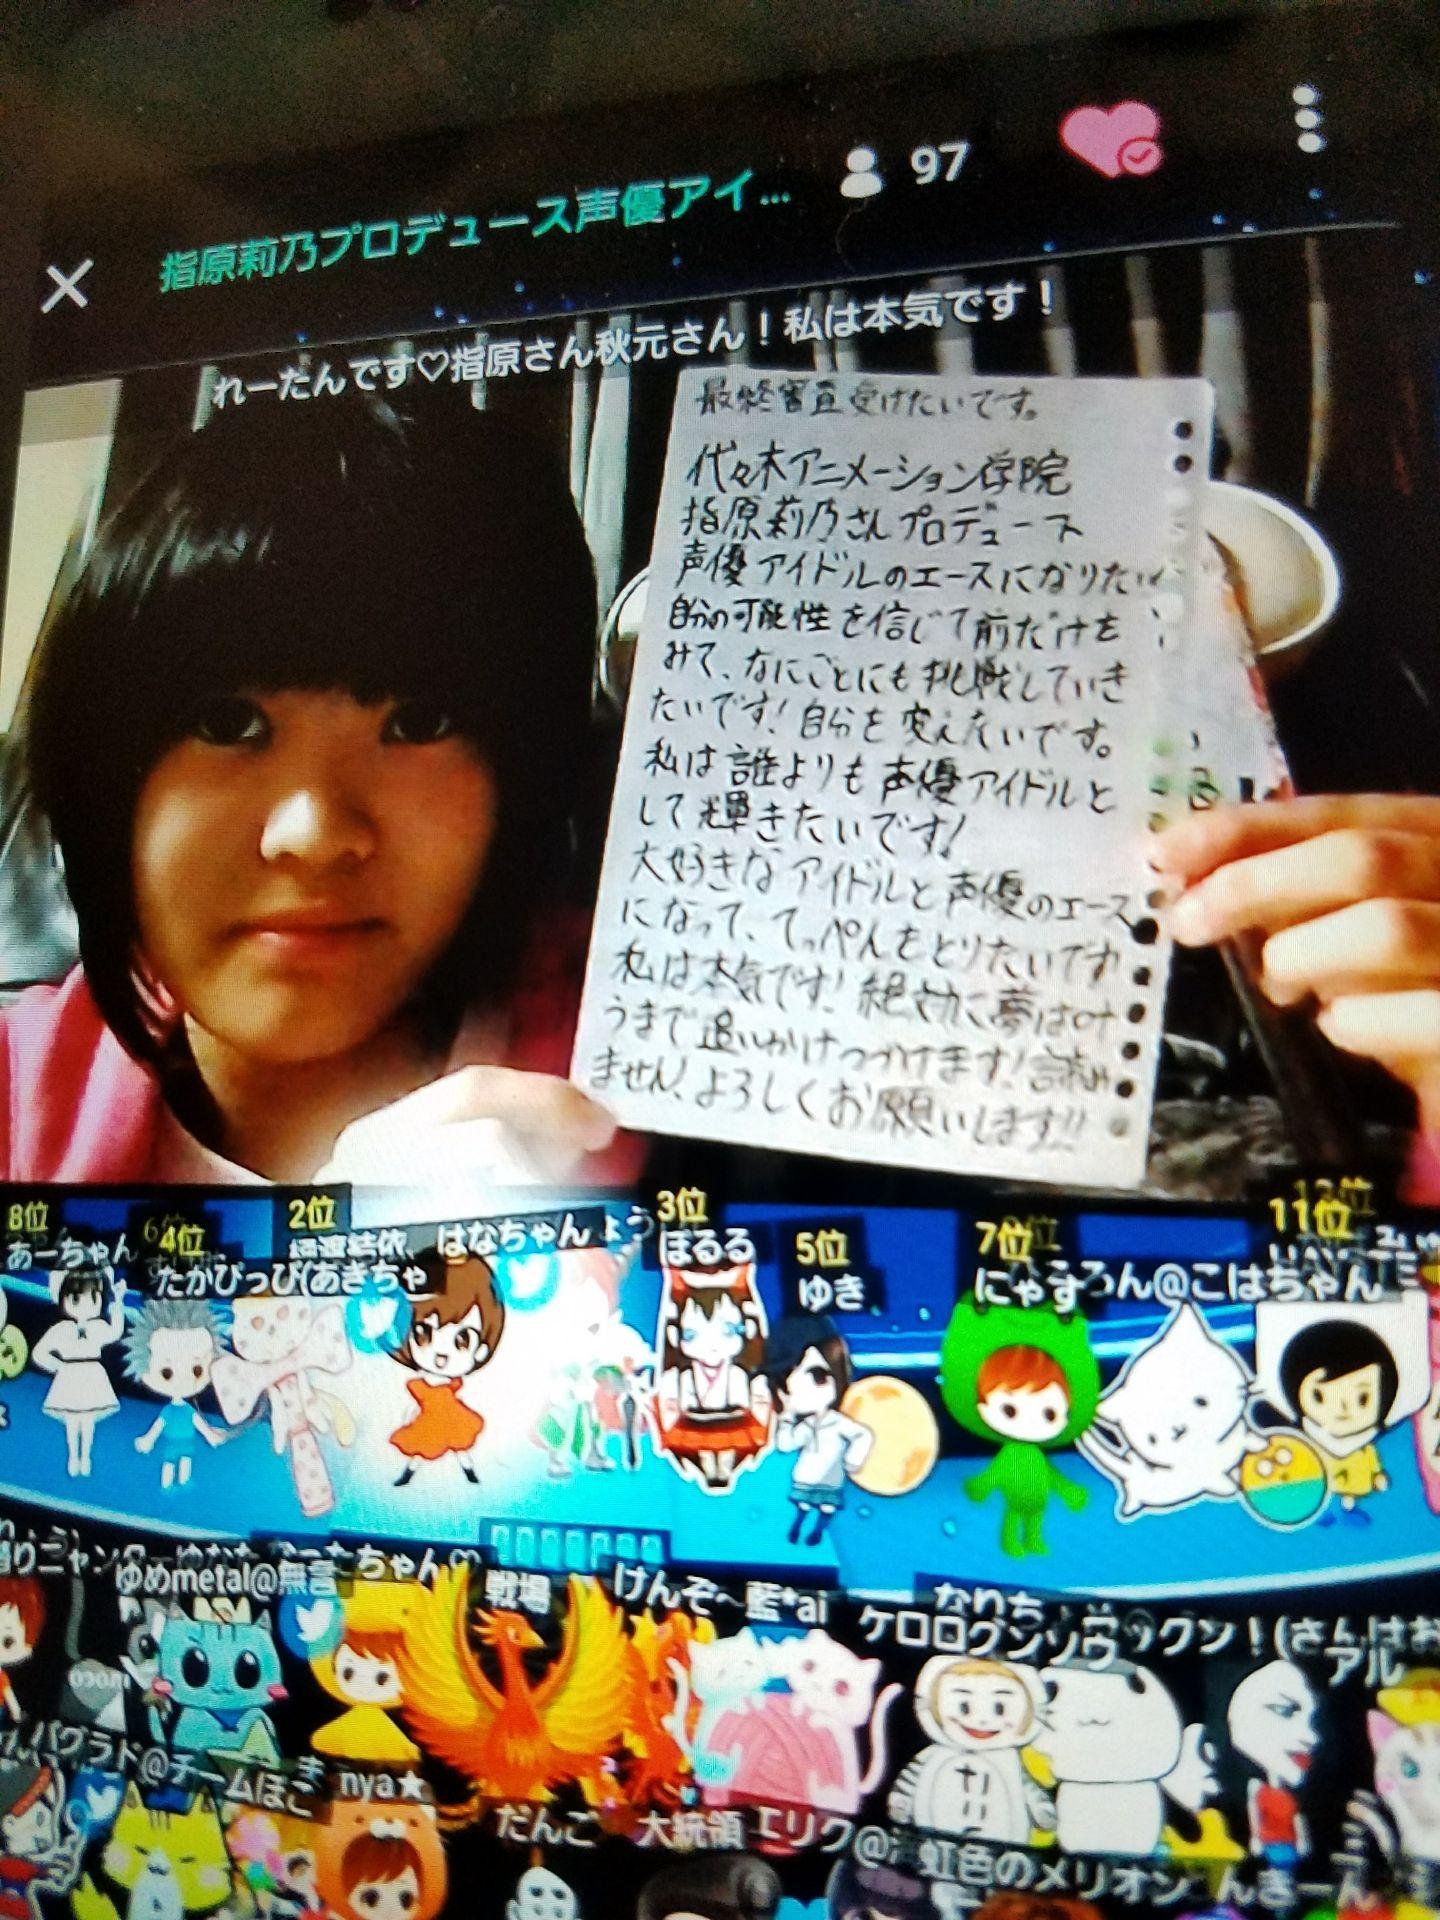 指原莉乃プロデュース声優アイ...
97
れーたんです♡指原さん秋元さん！私は本気です！
最終審査受けたいです。
代々木アニメーション学院
指原莉乃さんプロデュース
声優アイドルのエースになりたい
自分の可能性を信じて前だけを
みて、なにごとにも挑戦していき
たいです！自分を変えたいです。
私は誰よりも声優アイドルと
して輝きたいです！
大好きなアイドルと声優のエース
になって、てっぺんをとりたいです
私は本気です！絶対に夢は叶
うまで追いかけつづけます！諦め
ません、よろしくお願いします!!
8位
あーちゃん
4位
たかぴっぴ(あきちゃ
2位
はなちゃん
3位
ぽるる
5位
ゆき
7位
にゃす
ろん@こはちゃん
11位
ゆめmetal@無言
たちゃん
戦場
けんぞ～藍*ai
なりち
ケロログンソウ
ックン！(さんはお
アル
バグラド@チームほこ
nya★
だんご
大統領
エリク@
虹色のメリオン
んきーん